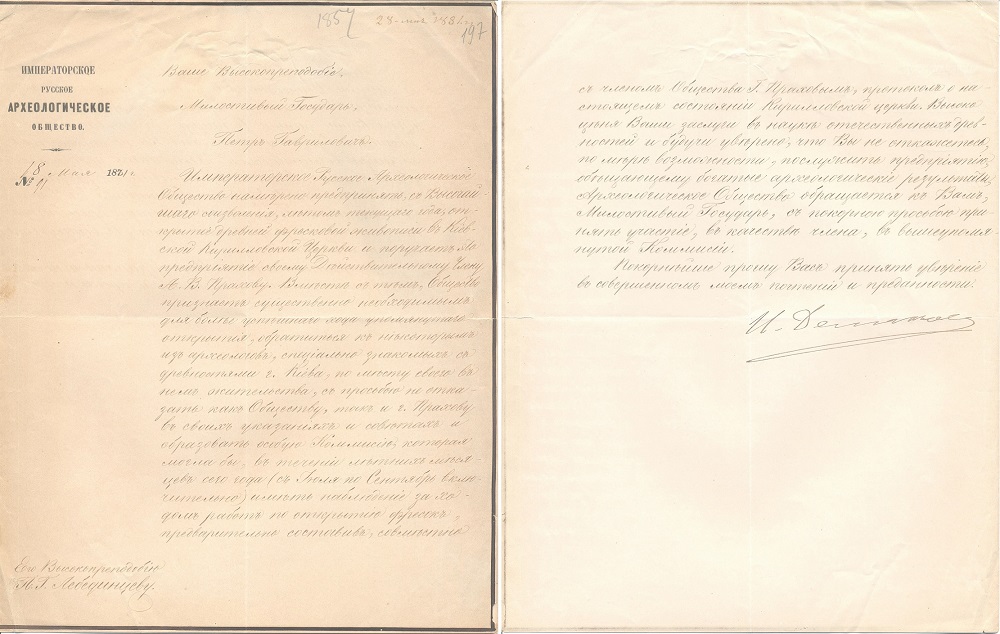 1857
28 мая 1881 г.
197
ИМПЕРАТОРСКОЕ
РУССКОЕ
АРХЕОЛОГИЧЕСКОЕ
ОБЩЕСТВО.
18 Мая 1881 г.
№
Ваше Высокопреподобіе,
Милостивый Государь,
Петръ Гавриловичъ.
Императорское Русское Археологическое
Общество намѣрено предпринять, съ Высочай
шаго соизволенія, лѣтомъ текущаго года, от-
крытіе древней фресковой живописи въ Кіев-
ской Кирилловской Церкви и поручаетъ
предпріятіе своему Дѣйствительному Члену
А. В. Прахову. Вмѣстѣ съ тѣмъ, Общество
признаетъ существенно необходимымъ
для болѣе успѣшнаго хода упомянутаго
открытія, обратиться къ нѣкоторымъ
изъ археологовъ, спеціально знакомыхъ съ
древностями г. Кіева, по мѣсту своего въ
немъ жительства, съ просьбою не отка-
зать какъ Обществу, такъ и г. Прахову
въ своихъ указаніяхъ и совѣтахъ и
образовать особую Коммисію, которая
могла бы, въ теченіи лѣтнихъ мѣся-
цевъ сего года (съ Іюля по Сентябрь вклю-
чительно) имѣть наблюденіе за хо-
домъ работъ по открытію фресокъ,
предварительно составивъ, совмѣстно
Его Высокопреподобію
П. Г. Лебединцеву.
съ членомъ Общества Г. Праховымъ, протоколъ о на-
стоящемъ состояніи Кирилловской церкви. Высоко
цѣня Ваши заслуги въ наукѣ отечественныхъ древ-
ностей и будучи увѣрено, что Вы не откажетесь,
по мѣрѣ возможности, послужить предпріятію,
обѣщающему богатые археологическіе результаты,
Археологическое Общество обращается къ Вамъ,
Милостивый Государь, съ покорною просьбою при-
нять участіе, въ качествѣ члена, въ вышеупомя-
нутой Коммисіи.
Покорнѣйше прошу Васъ принять увѣреніе
въ совершенномъ моемъ почтеніи и преданности.